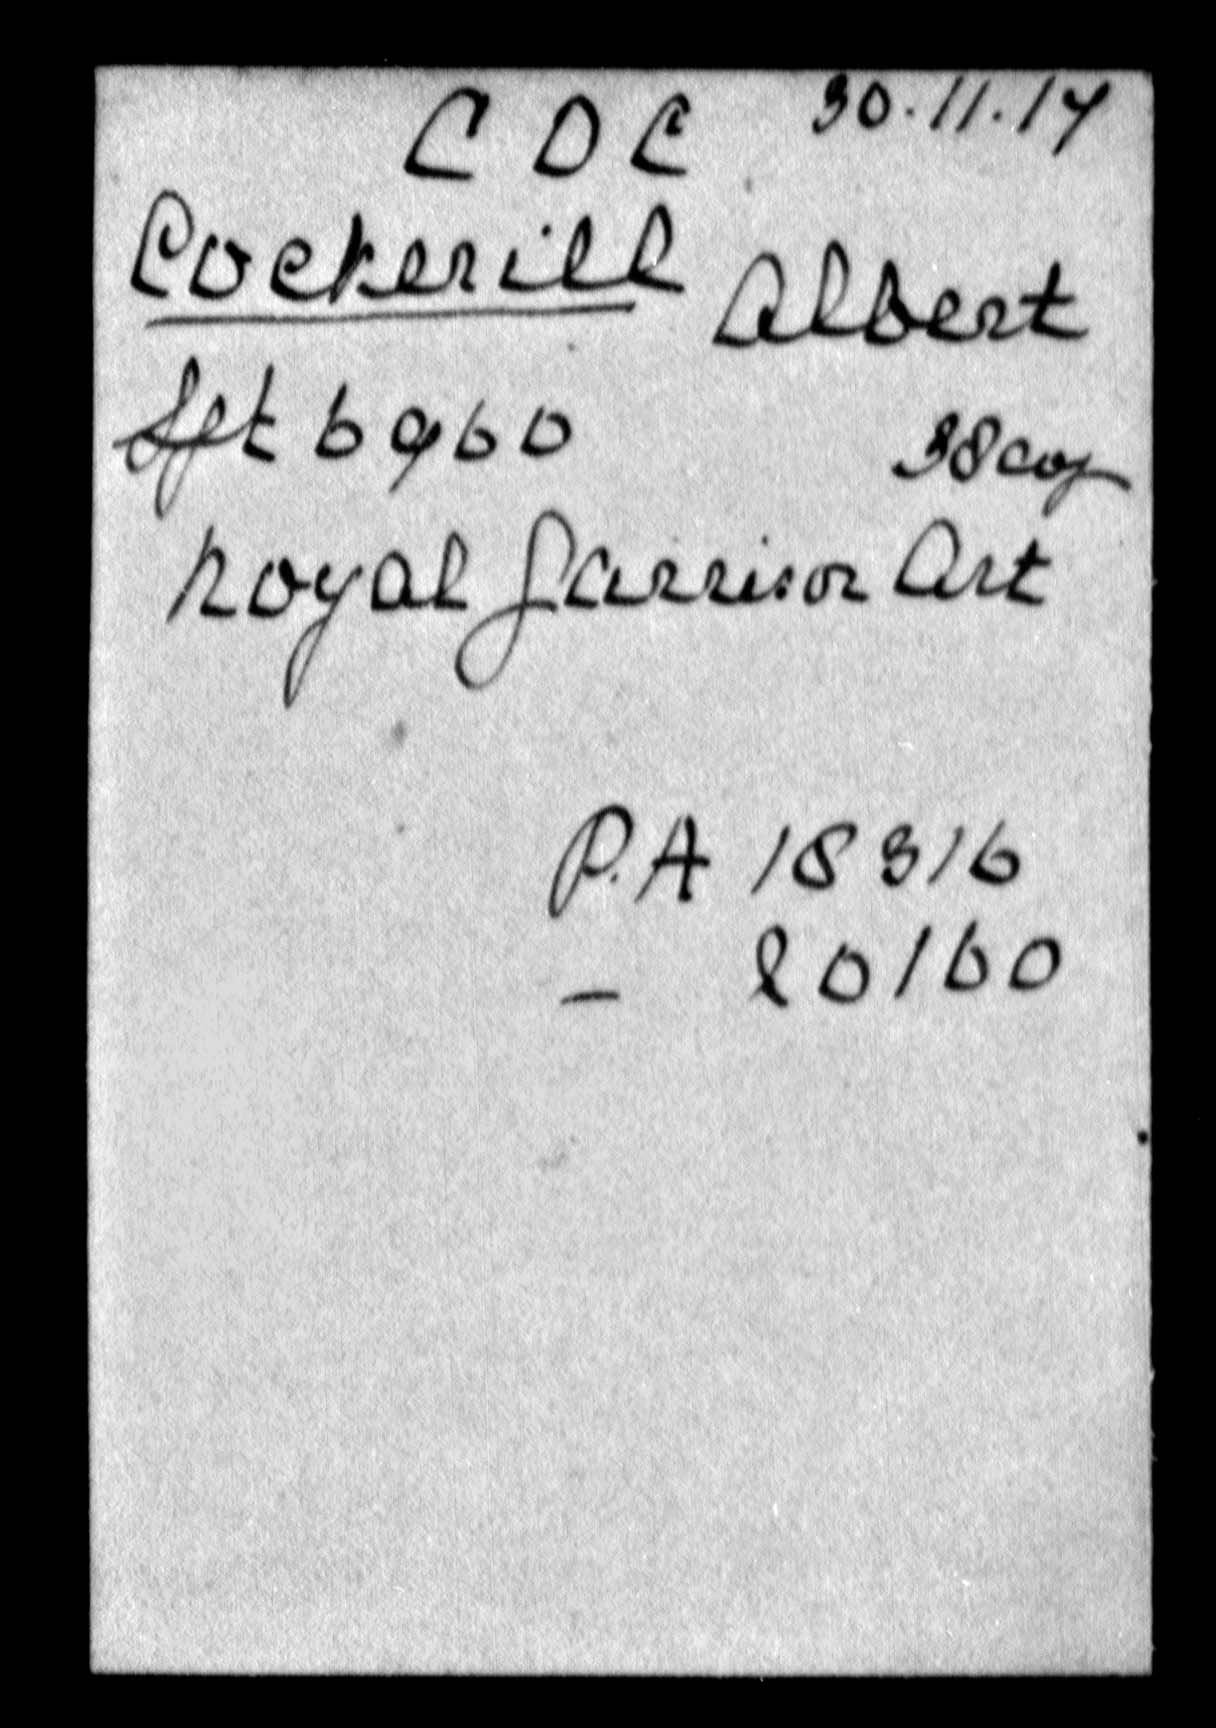 C D C 30.11.17
Cockerill Albert
Sjt 6960 38 coy
Royal Garrison Art
P.A 18316
— 20160